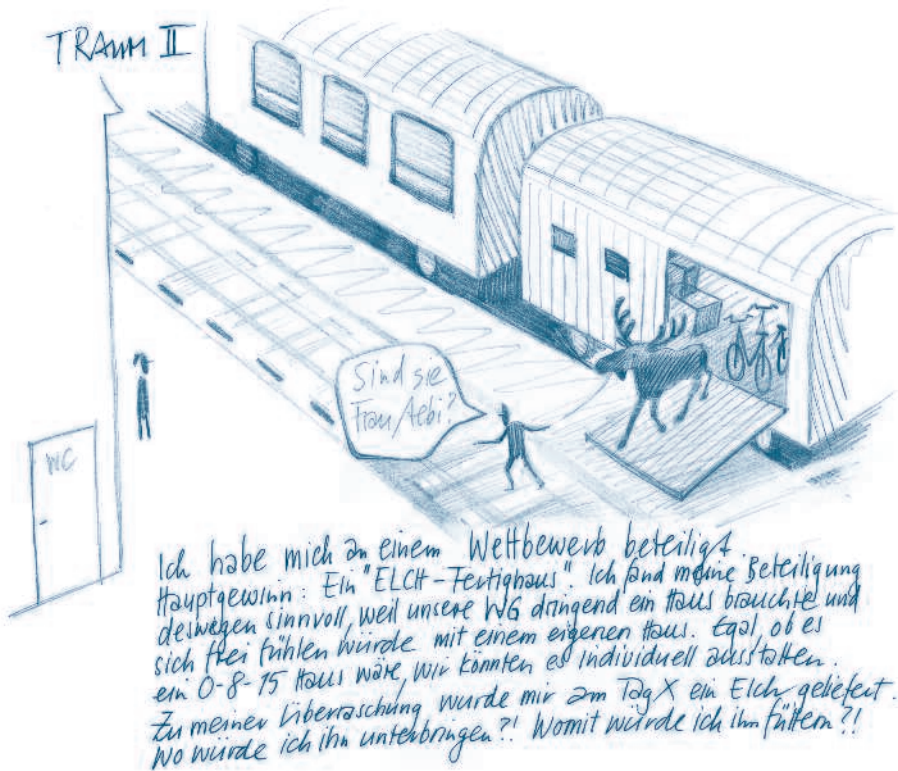 TRAUM II
Sind sie
Frau Aebi?
WC
Ich habe mich an einem Wettbewerb beteiligt.
Hauptgewinn: Ein "ELCH-Fertighaus". Ich fand meine Beteiligung
deswegen sinnvoll, weil unsere WG dringend ein Haus brauchte und
sich frei fühlen würde mit einem eigenen Haus. Egal, ob es
ein 0-8-15 Haus wäre, wir könnten es individuell ausstatten.
Zu meiner Überraschung wurde mir am Tag X ein Elch geliefert.
Wo würde ich ihn unterbringen?! Womit würde ich ihn füttern?!